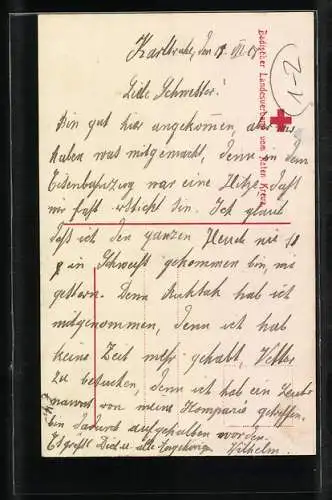 Karlsruhe, den 19. VII. 15
Liebe Schwester!
Bin gut hier angekommen, aber wir
haben was mitgemacht, denn in dem
Eisenbahnzug war eine Hitze, daß
wir fast erstickt sin. Ich glaub
daß ich den ganzen nie so
in Schweiß gekommen bin, wie
gestern. Denn hab ich
mitgenommen, denn ich hab
keine Zeit mehr gehabt, Vetter
zu besuchen, denn ich hab ein
von meine Kompanie getroffen
bin dadurch aufgehalten worden.
Es grüßt Dich u. alle Angehörige
Wilhelm.
Badischer Landesverein vom Roten Kreuz